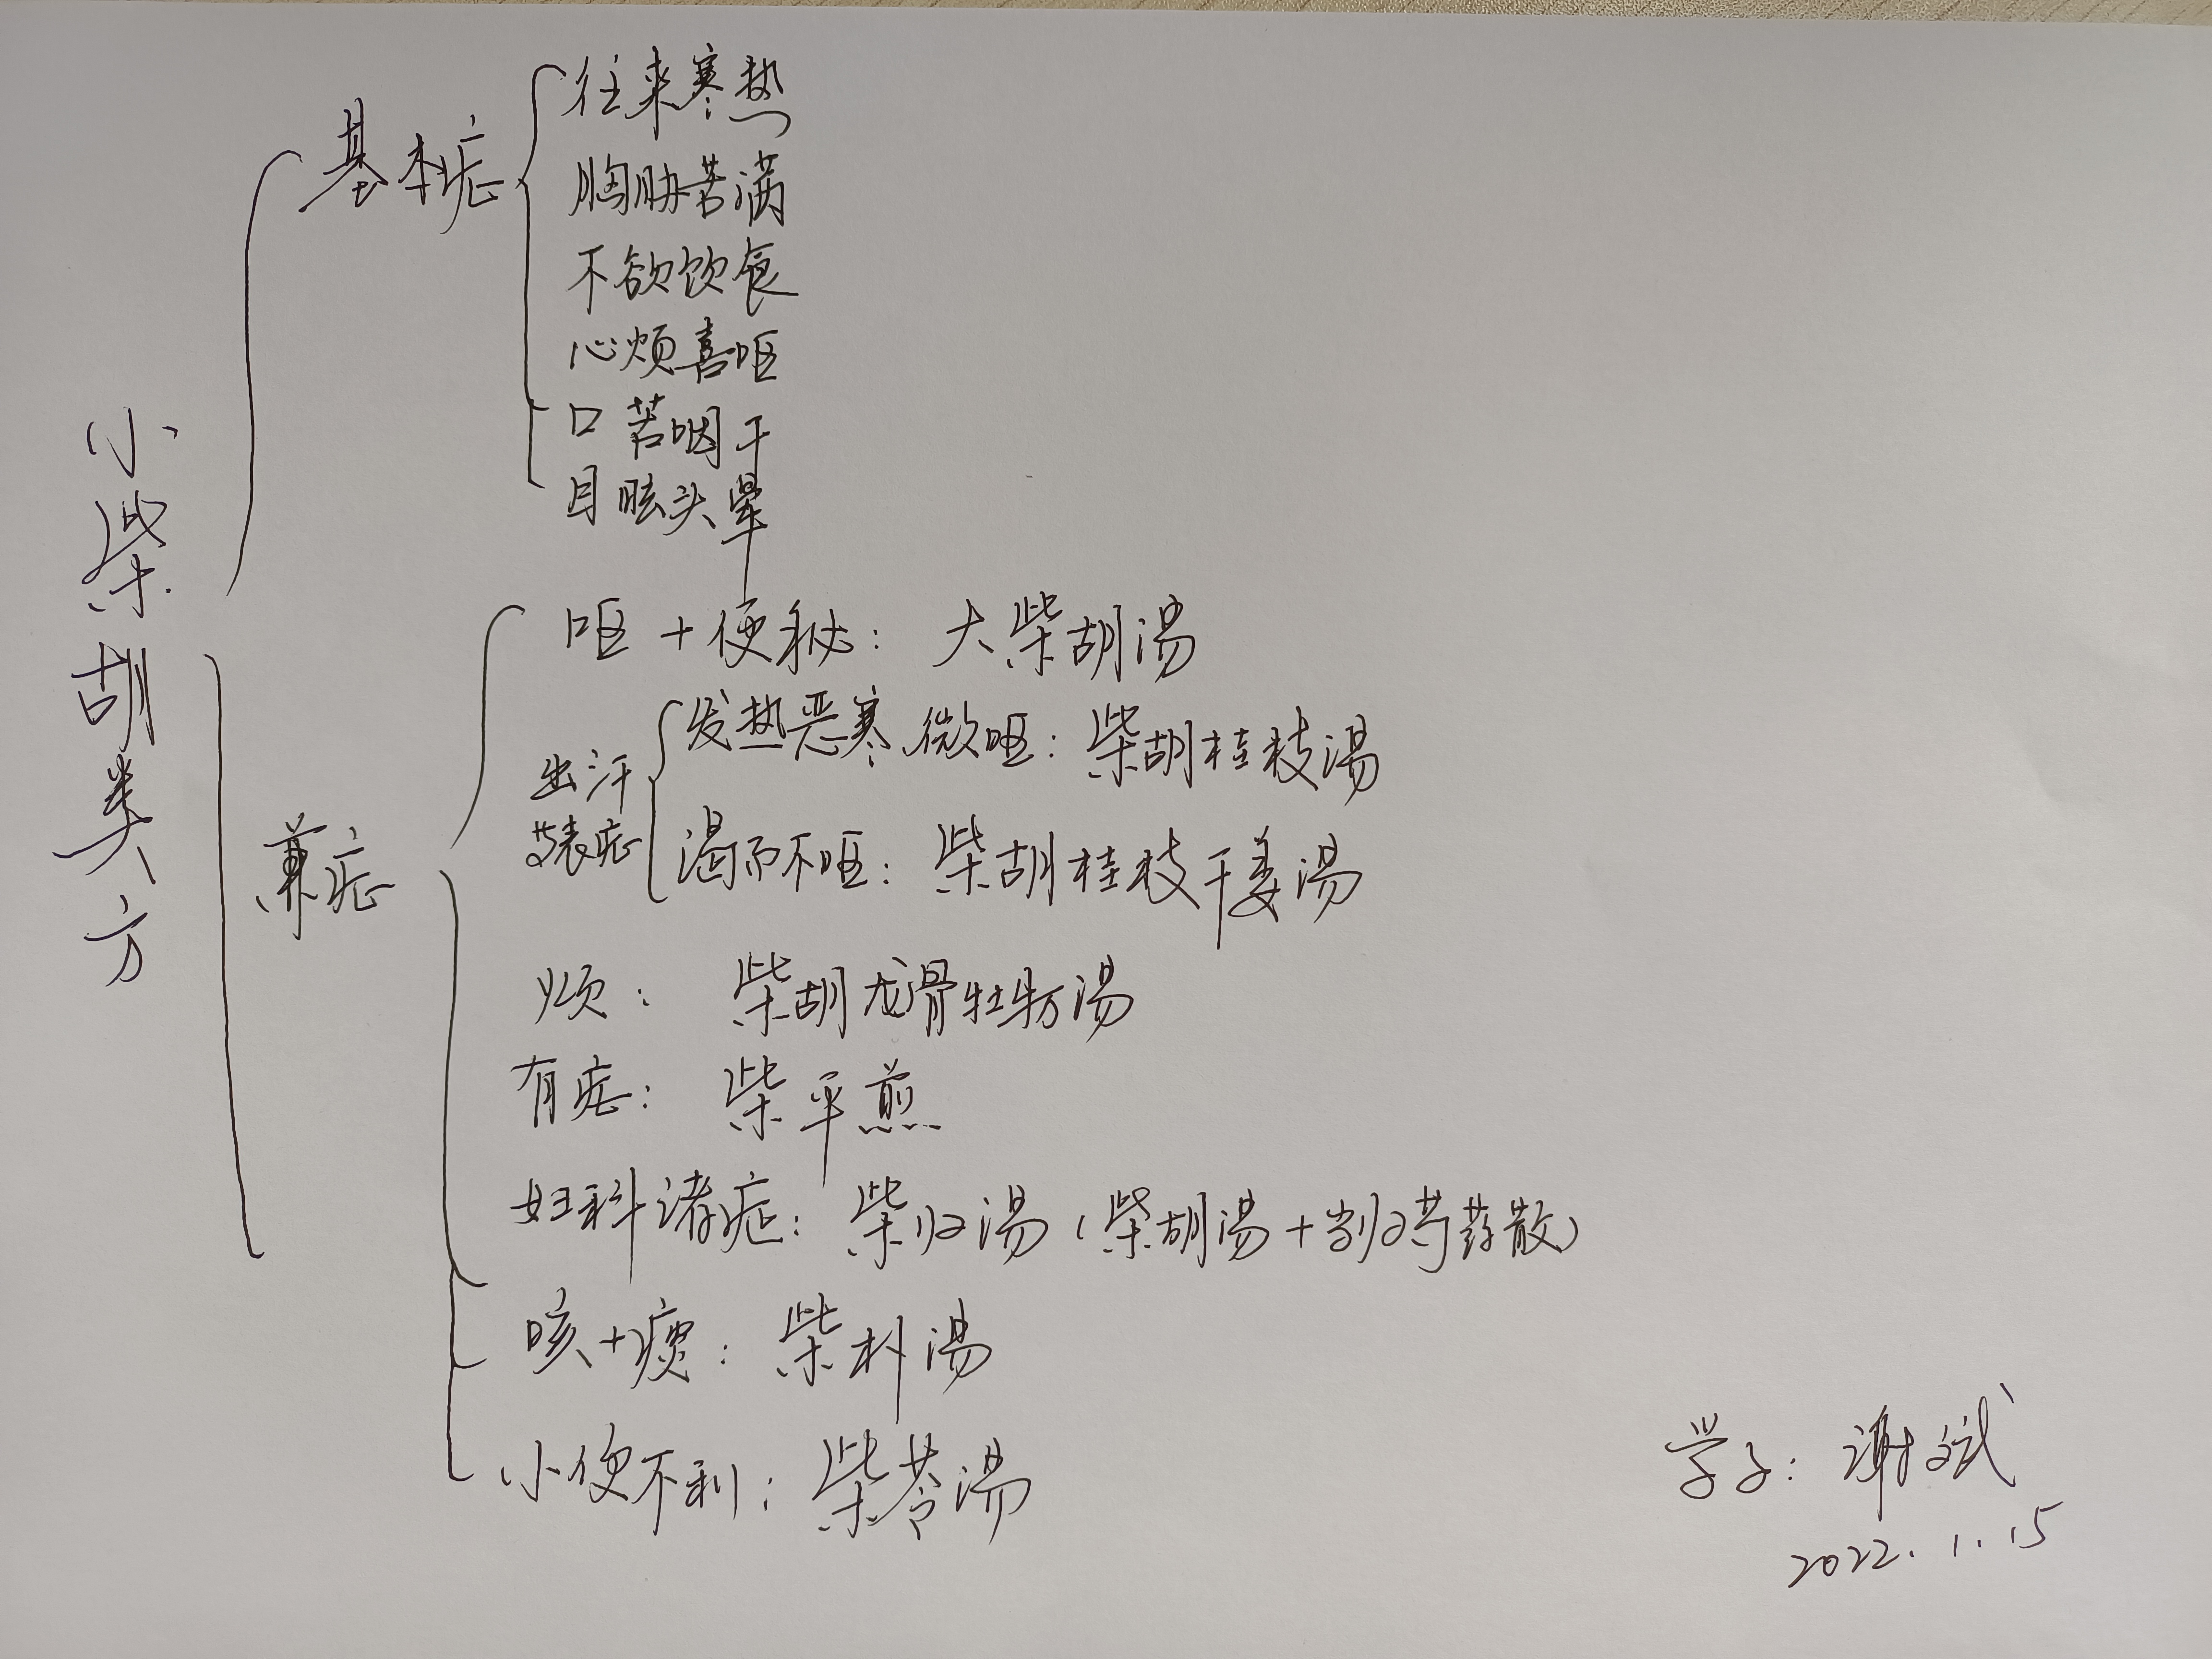 小柴胡类方
基本症
往来寒热
胸胁苦满
不欲饮食
心烦喜呕
口苦咽干
目眩头晕
兼症
呕+便秘：大柴胡汤
出汗
等表症
发热恶寒、微呕：柴胡桂枝汤
渴而不呕：柴胡桂枝干姜汤
烦：柴胡龙骨牡蛎汤
有症：柴平煎
妇科诸症：柴归汤（柴胡汤+当归芍药散）
咳+痰：柴朴汤
小便不利：柴苓汤
学子：谢斌
2022.1.15